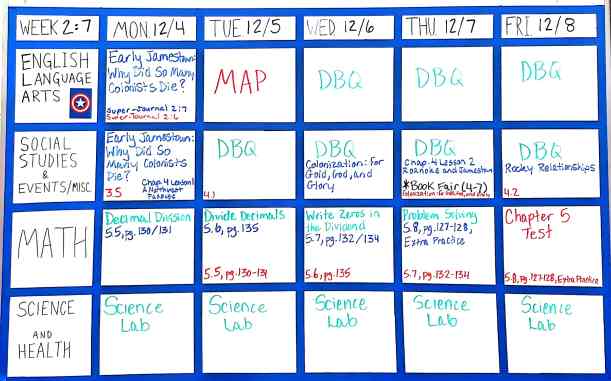 WEEK 2:7
MON. 12/4
TUE. 12/5
WED. 12/6
THU. 12/7
FRI. 12/8
ENGLISH
LANGUAGE
ARTS
Early Jamestown:
Why Did So Many
Colonists Die?
Super-Journal 2:7
Super-Journal 2:6
MAP
DBQ
DBQ
DBQ
SOCIAL
STUDIES
&
EVENTS/MISC
Early Jamestown:
Why Did So
Many Colonists
Die?
Chap. 4 Lesson 1
3.5
DBQ
4.1
DBQ
Colonization: For
Gold, God, and
Glory
DBQ
Chap. 4 Lesson 2
Roanoke and Jamestown
*Book Fair (4-7)
DBQ
Rocky Relationships
4.2
MATH
Decimal Division
5.5, pg. 130/131
Divide Decimals
5.6, pg. 135
5.5, pg. 130-131
Write Zeros in
the Dividend
5.7, pg. 132/134
5.6, pg. 135
Problem Solving
5.8, pg. 127-128,
Extra Practice
5.7, pg. 132-134
Chapter 5
Test
5.8, pg. 127-128, Extra Practice
SCIENCE
AND
HEALTH
Science
Lab
Science
Lab
Science
Lab
Science
Lab
Science
Lab